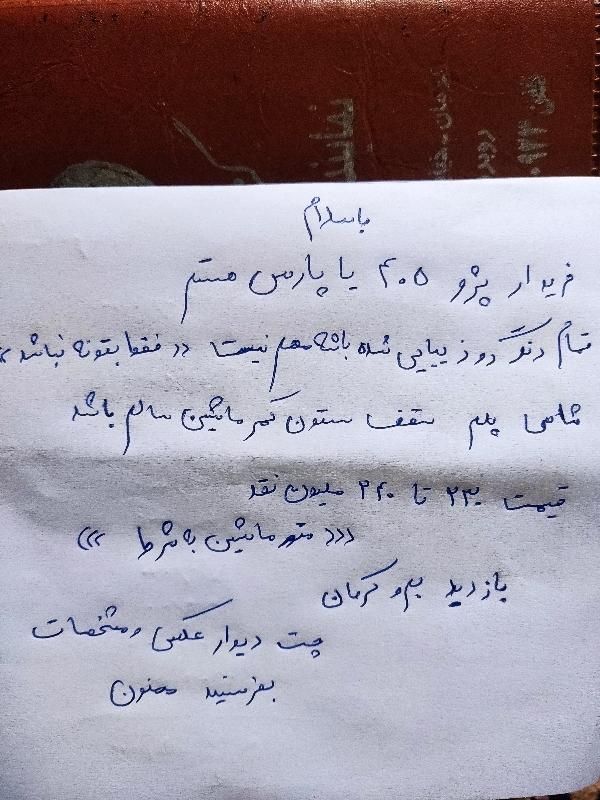 نمایند
تلفن
۰۹۲۳
باسلام
خریدار پژو ۴۰۵ یا پارس هستم
تمام رنگ دوزیبایی شده باشه مهم نیست ((فقط بتونه نباشد))
شاسی پلم سقف ستون کمر ماشین سالم باشد
قیمت ۲۳۰ تا ۲۴۰ میلیون نقد
((( متور ماشین به شرط )))
بازدید بم و کرمان
چت دیوار عکس و مشخصات
بفرستید ممنون